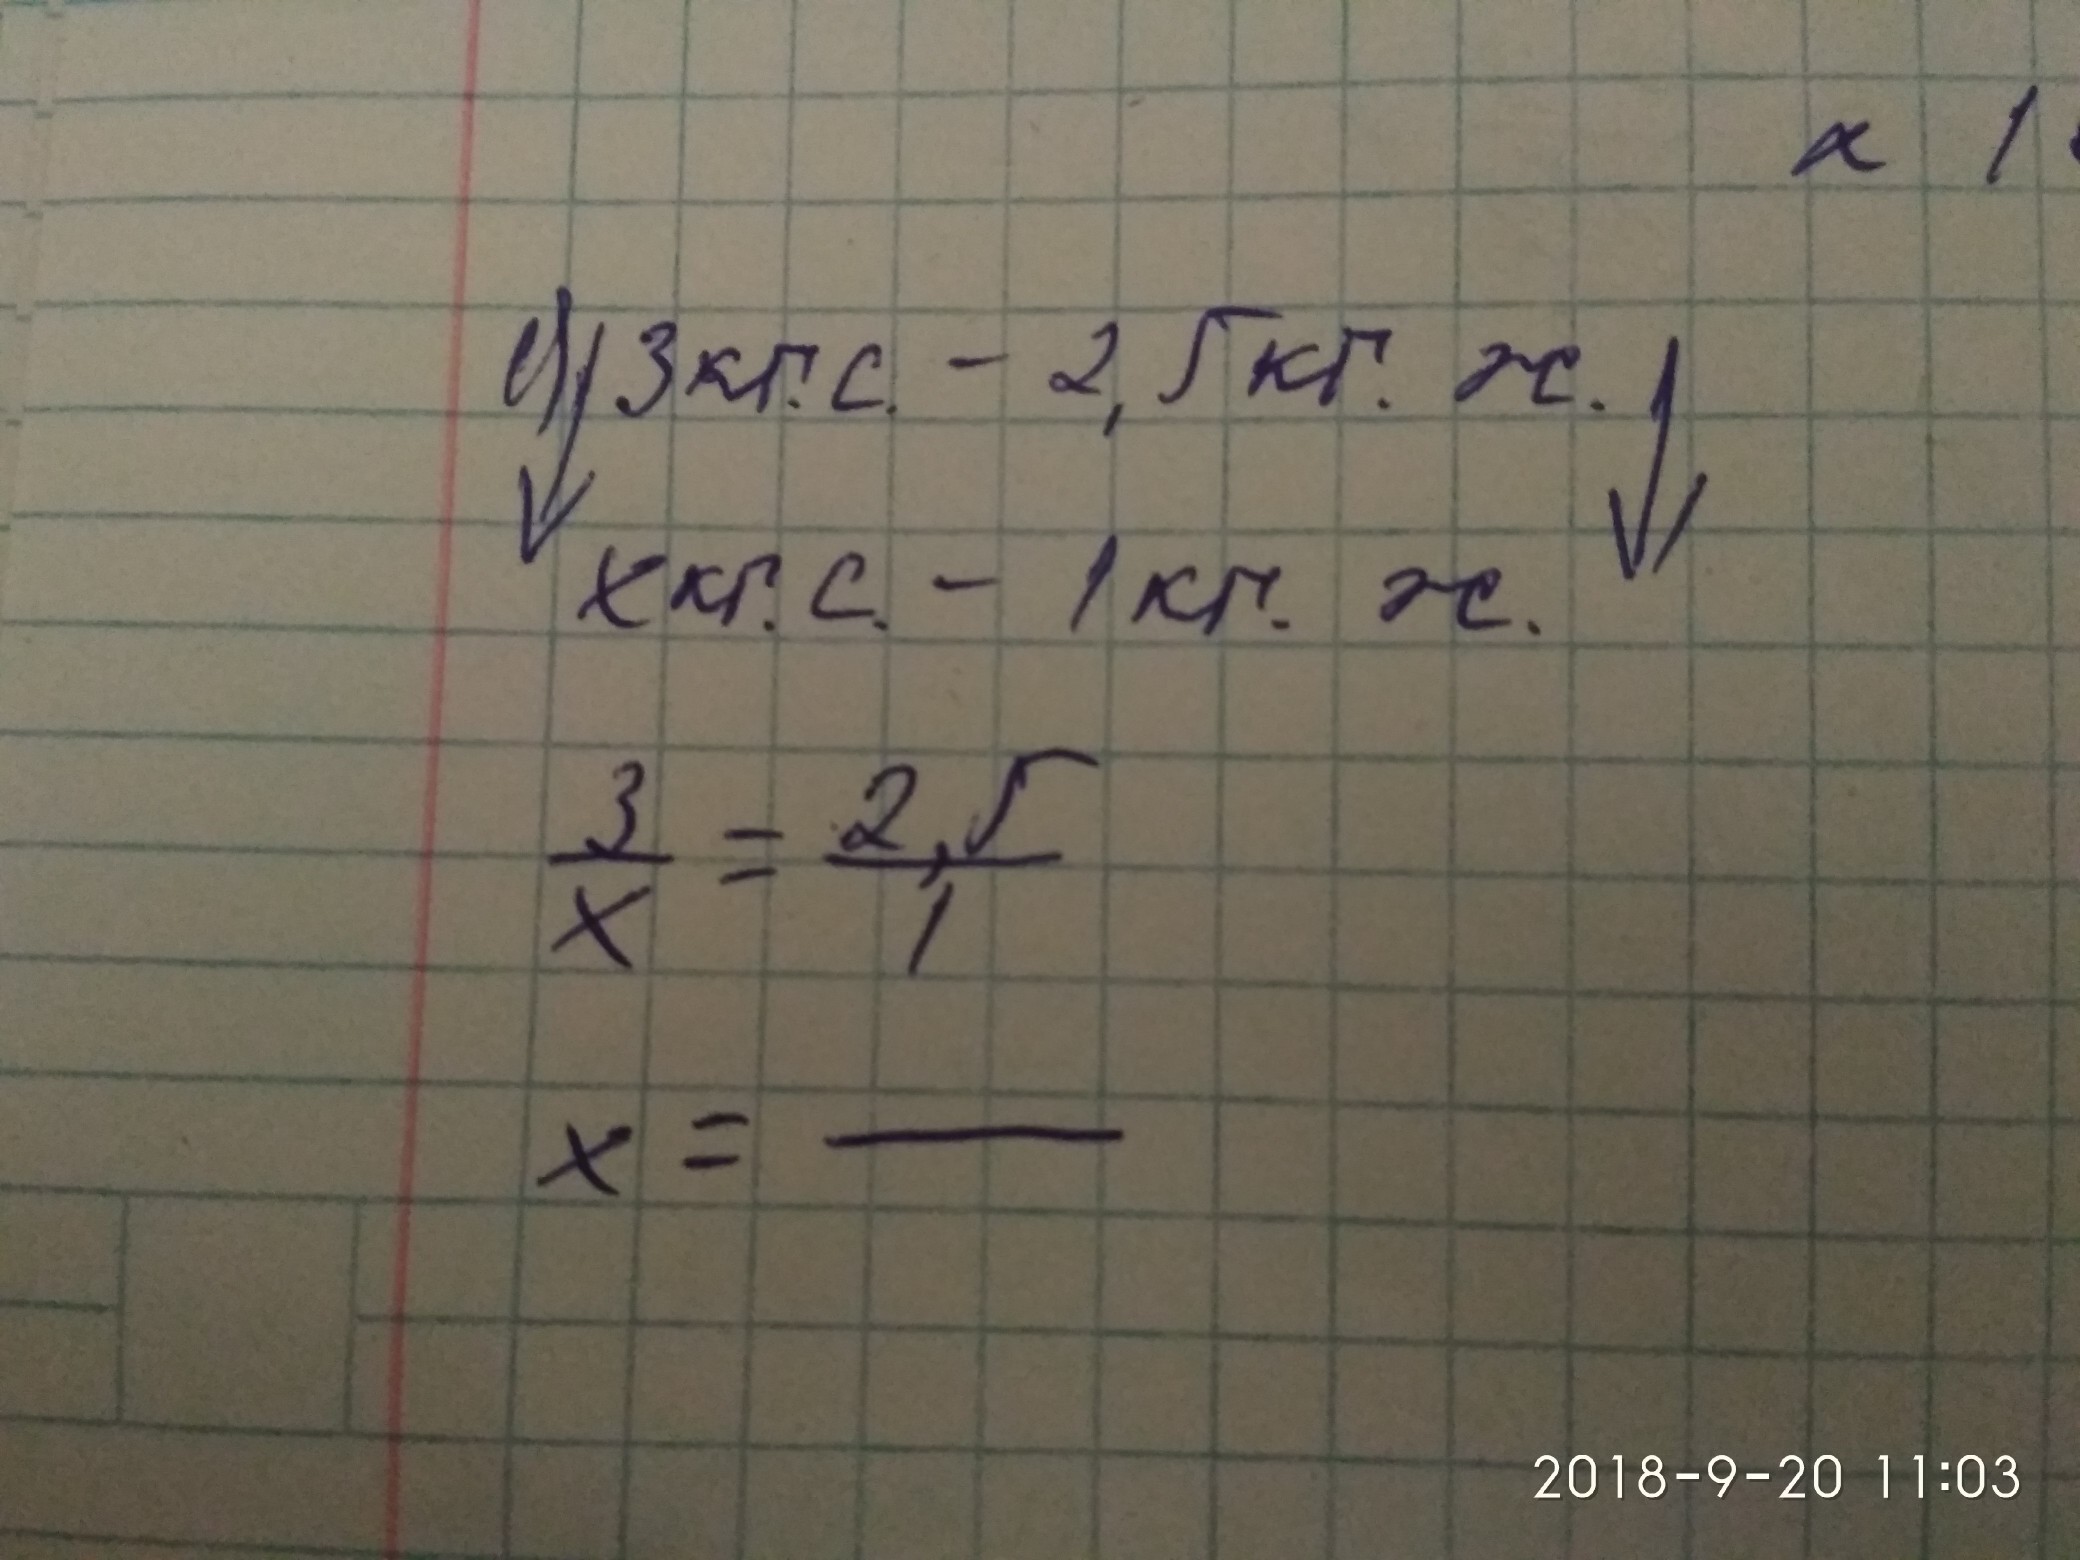 x 1
1) 3 кг. с. - 2,5 кг. ж.
x кг. с. - 1 кг. ж.
3/x = 2,5/1
x = —
2018-9-20 11:03